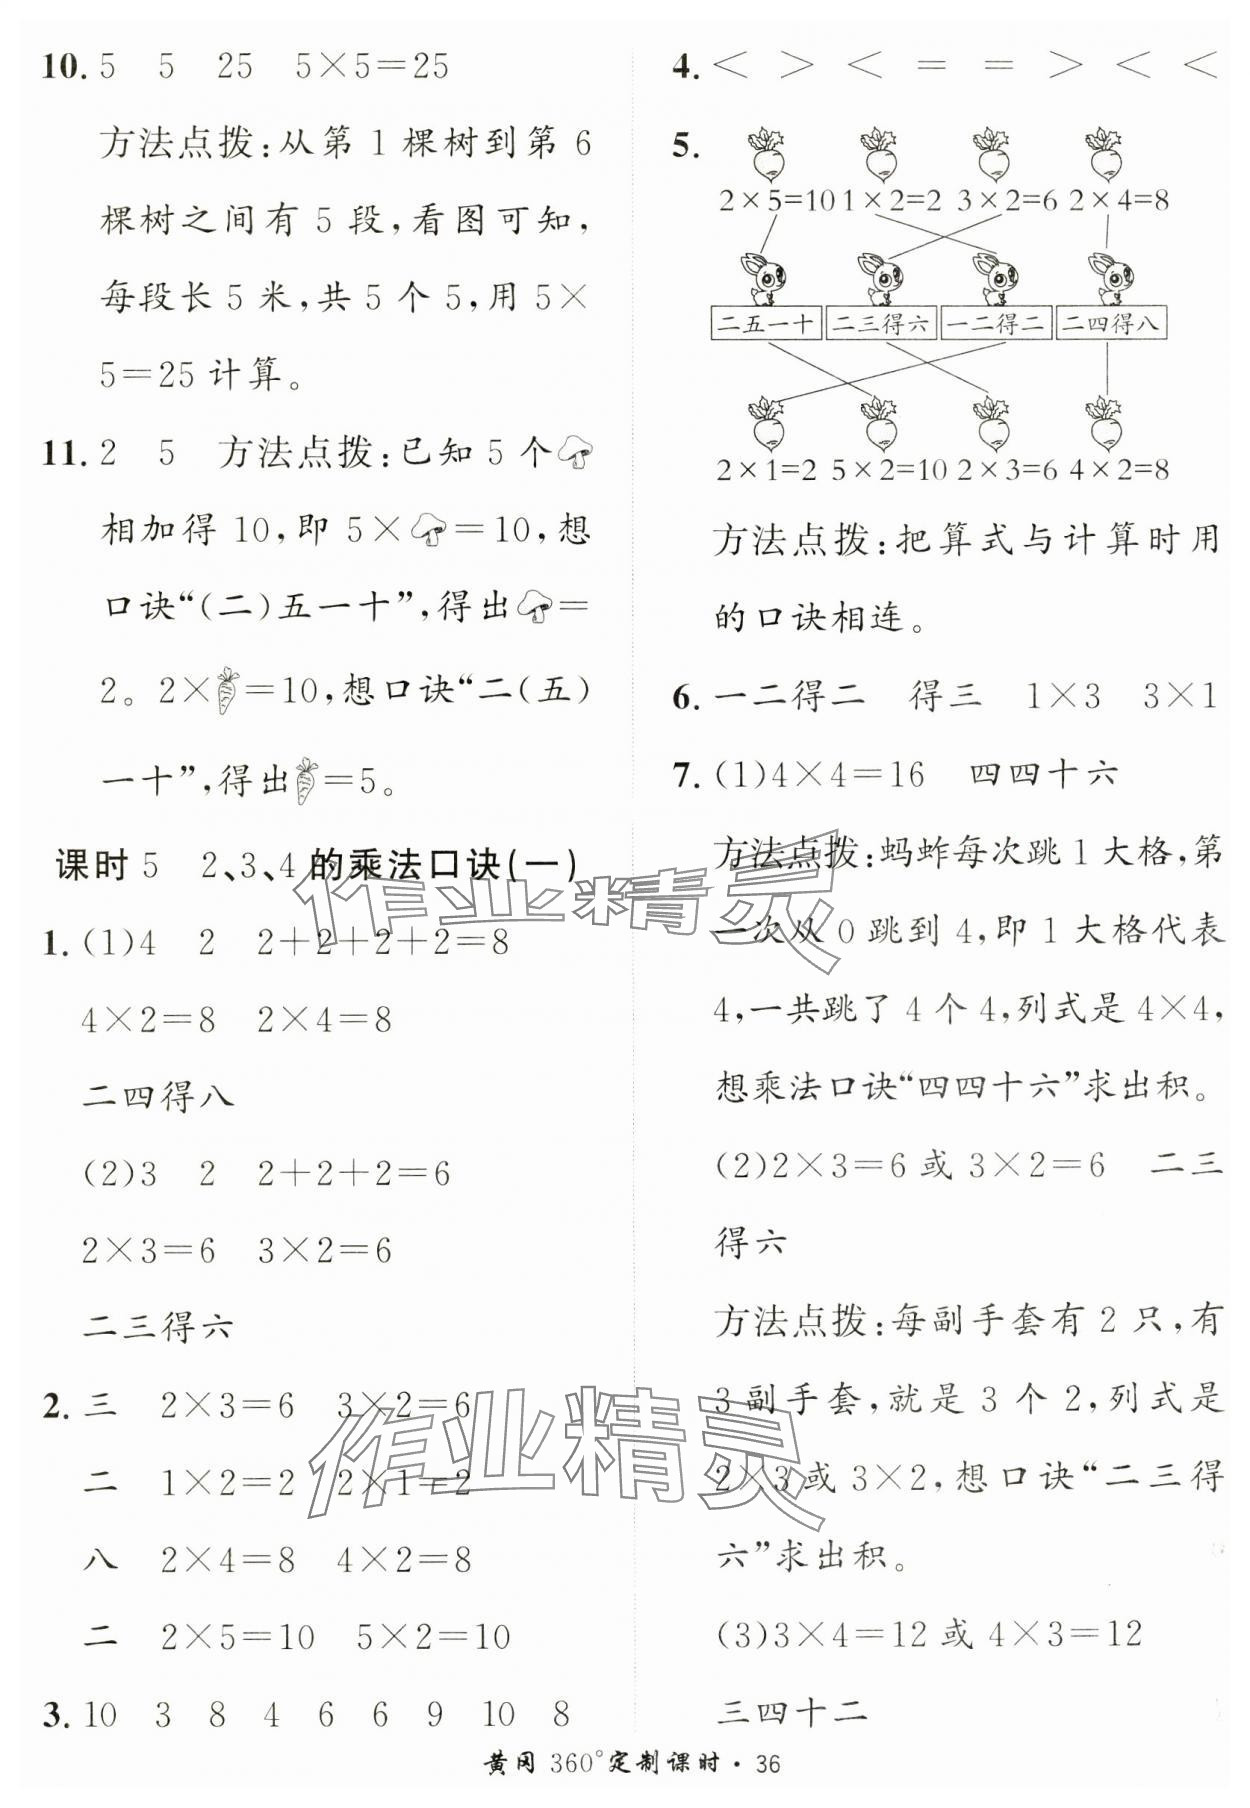 10. 5 5 25 5×5=25
方法点拨:从第 1 棵树到第 6
棵树之间有 5 段,看图可知,
每段长 5 米,共 5 个 5,用 5×
5=25 计算。
11. 2 5 方法点拨:已知 5 个
相加得 10,即 5× =10,想
口诀“(二)五一十”,得出 =
2。2× =10,想口诀“二(五)
一十”,得出 =5。
课时 5 2、3、4 的乘法口诀(一)
1. (1)4 2 2+2+2+2=8
4×2=8 2×4=8
二四得八
(2)3 2 2+2+2=6
2×3=6 3×2=6
二三得六
2. 三 2×3=6 3×2=6
二 1×2=2 2×1=2
八 2×4=8 4×2=8
二 2×5=10 5×2=10
3. 10 3 8 4 6 6 9 10 8
4. < > < = = > < <
5.
2×5=10 1×2=2 3×2=6 2×4=8
二五一十 二三得六 一二得二 二四得八
2×1=2 5×2=10 2×3=6 4×2=8
方法点拨:把算式与计算时用
的口诀相连。
6. 一二得二 得三 1×3 3×1
7. (1)4×4=16 四四十六
方法点拨:蚂蚱每次跳 1 大格,第
一次从 0 跳到 4,即 1 大格代表
4,一共跳了 4 个 4,列式是 4×4,
想乘法口诀“四四十六”求出积。
(2)2×3=6 或 3×2=6 二三
得六
方法点拨:每副手套有 2 只,有
3 副手套,就是 3 个 2,列式是
2×3 或 3×2,想口诀“二三得
六”求出积。
(3)3×4=12 或 4×3=12
三四十二
黄冈 360°定制课时·36
作业精灵
作业精灵